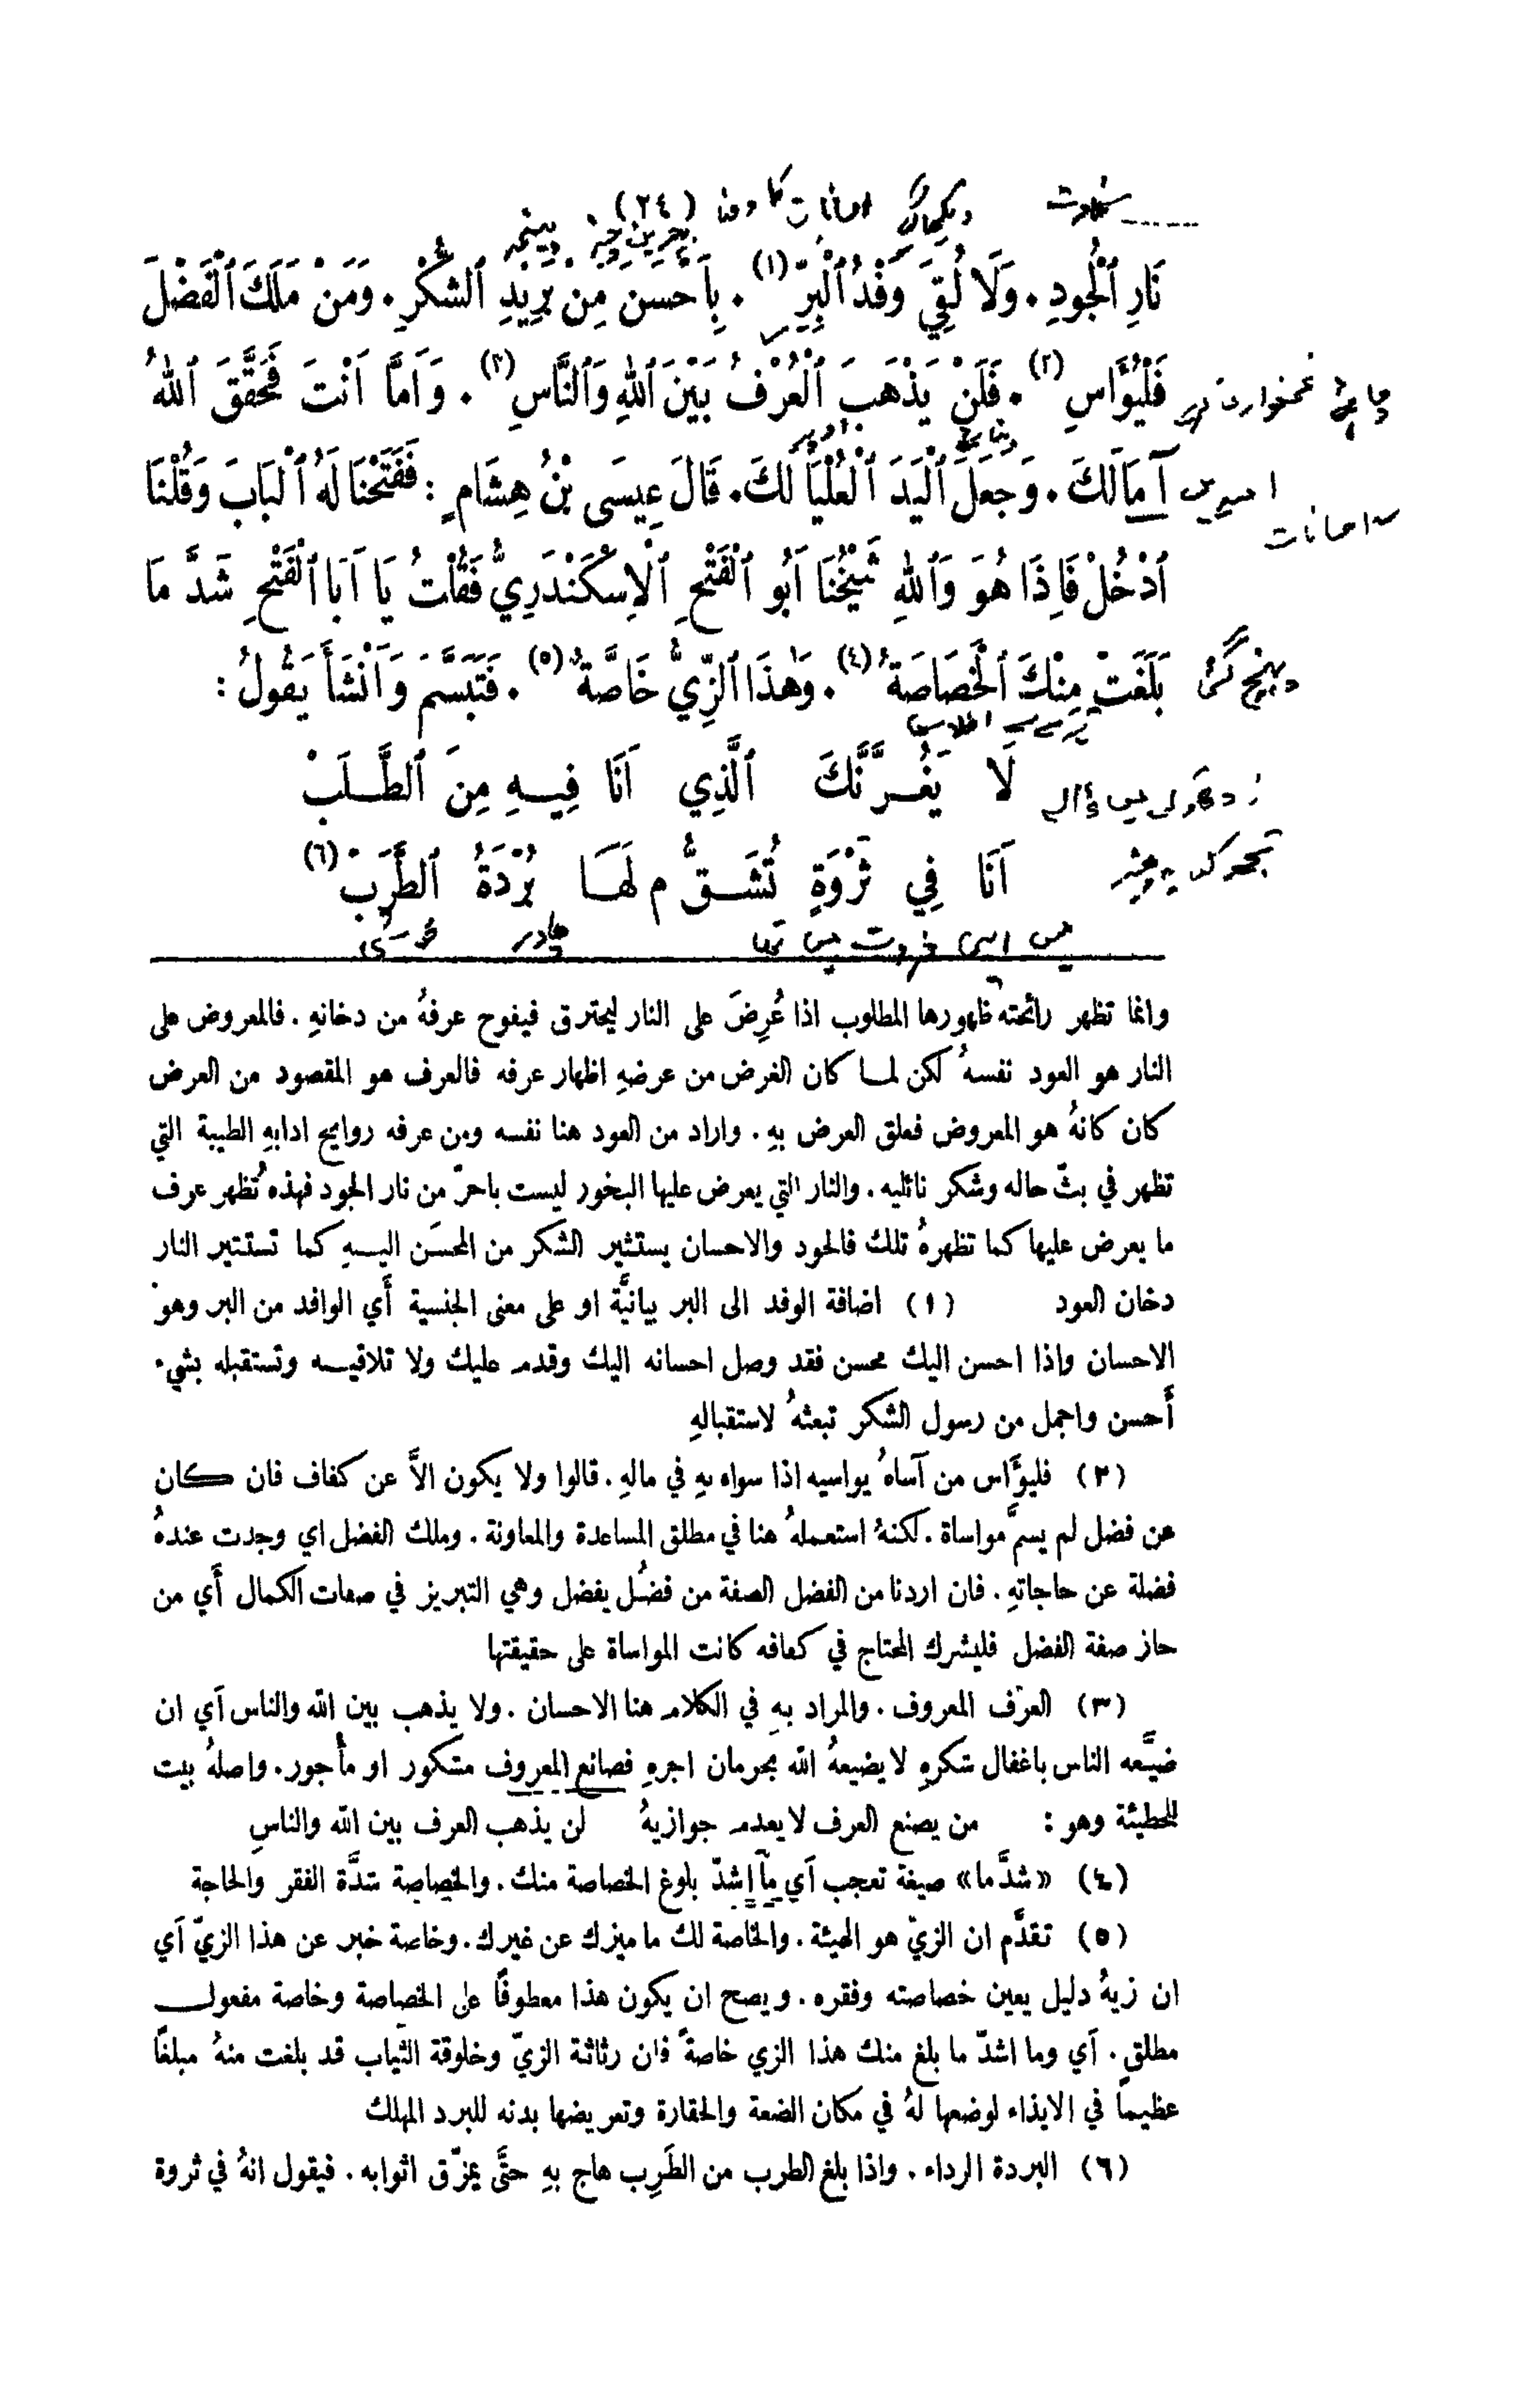 (٢٤)
نَارِ ٱلْجُودِ . وَلَا لُقِيَ وَفْدُ ٱلْبِرِّ (١) . بِاَحْسَنَ مِنْ بَرِيْدِ ٱلشُّكْرِ . وَمَنْ مَلَكَ ٱلْفَضْلَ
فَلْيُؤَاسِ (٢) . فَلَنْ يَذْهَبَ ٱلْعُرْفُ بَيْنَ ٱللهِ وَٱلنَّاسِ (٣) . وَاَمَّا اَنْتَ فَحَقَّقَ ٱللهُ
آمَالَكَ . وَجَعَلَ ٱلْيَدَ ٱلْعُلْيَا لَكَ . قَالَ عِيسَى بْنُ هِشَامٍ : فَفَتَحْنَا لَهُ ٱلْبَابَ وَقُلْنَا
ٱدْخُلْ فَاِذَا هُوَ وَٱللهِ شَيْخُنَا اَبُو ٱلْفَتْحِ ٱلْاِسْكَنْدَرِيُّ فَقُلْتُ يَا اَبَا ٱلْفَتْحِ شَدَّ مَا
بَلَغَتْ مِنْكَ ٱلْخَصَاصَةُ (٤) . وَهٰذَا ٱلزِّيُّ خَاصَّةٌ (٥) . فَتَبَسَّمَ وَاَنْشَأَ يَقُولُ :
لَا يَغُـرَّنَّكَ ٱلَّذِي اَنَا فِيـهِ مِنَ ٱلطَّـلَبْ
اَنَا فِي ثَرْوَةٍ تُشَـقُّ م لَهَـا بُرْدَةُ ٱلطَّرَبْ (٦)
وانما تظهر رائحته ظهورها المطلوب اذا عُرِضَ على النار ليحترق فيفوح عرفهُ من دخانهِ . فالمعروض على
النار هو العود نفسهُ لكن لمـا كان الغرض من عرضهِ اظهار عرفه فالعرف هو المقصود من العرض
كان كانهُ هو المعروض فعلق العرض بهِ . واراد من العود هنا نفسه ومن عرفه روايح ادابهِ الطيبة التي
تظهر في بثّ حاله وشكر نائليه . والنار التي يعرض عليها البخور ليست باحرّ من نار الجود فهذه تُظهر عرف
ما يعرض عليها كما تظهرهُ تلك فالجود والاحسان يستثير الشكر من المحسَن اليـهِ كما تستثير النار
دخان العود (١) اضافة الوفد الى البر بيانيَّة او على معنى الجنسية أَي الوافد من البر وهو
الاحسان واذا احسن اليك محسن فقد وصل احسانه اليك وقدم عليك ولا تلاقيـه وتستقبله بشيء
أَحسن واجمل من رسول الشكر تبعثهُ لاستقبالهِ
(٢) فليؤَاس من آساهُ يواسيه اذا سواه بهِ في مالهِ . قالوا ولا يكون الاَّ عن كفاف فان كـان
عن فضل لم يسمَّ مواساة . لكنهُ استعملهُ هنا في مطلق المساعدة والمعاونة . وملك الفضل اي وجدت عندهُ
فضلة عن حاجاتهِ . فان اردنا من الفضل الصفة من فضُل يفضل وهي التبريز في صفات الكمال أَي من
حاز صفة الفضل فليشرك المحتاج في كفافه كانت المواساة على حقيقتها
(٣) العرْف المعروف . والمراد بهِ في الكلام هنا الاحسان . ولا يذهب بين الله والناس اَي ان
ضيَّعه الناس باغفال شكرهِ لا يضيعهُ الله بحرمان اجرهِ فصانع المعروف مشكور او مأْجور . واصلهُ بيت
للحطيئة وهو : من يصنع العرف لا يعدم جوازيهُ لن يذهب العرف بين الله والناسِ
(٤) «شدَّ ما» صيغة تعجب اَي ما اشدّ بلوغ الخصاصة منك . والخصاصة شدَّة الفقر والحاجة
(٥) تقدَّم ان الزيّ هو الهيئة . والخاصة لك ما ميزك عن غيرك . وخاصة خبر عن هذا الزيّ اَي
ان زيهُ دليل يعين خصاصته وفقره . ويصح ان يكون هذا معطوفًا على الخصاصة وخاصة مفعولـ
مطلق . اَي وما اشدّ ما بلغ منك هذا الزي خاصةً فان رثاثة الزيّ وخلوقة الثياب قد بلغت منهُ مبلغًا
عظيمًا في الايذاء لوضعها لهُ في مكان الضعة والحقارة وتعريضها بدنه للبرد المهلك
(٦) البردة الرداء . واذا بلغ الطرب من الطَرِب هاج بهِ حتَّى يمزّق اثوابه . فيقول انهُ في ثروة